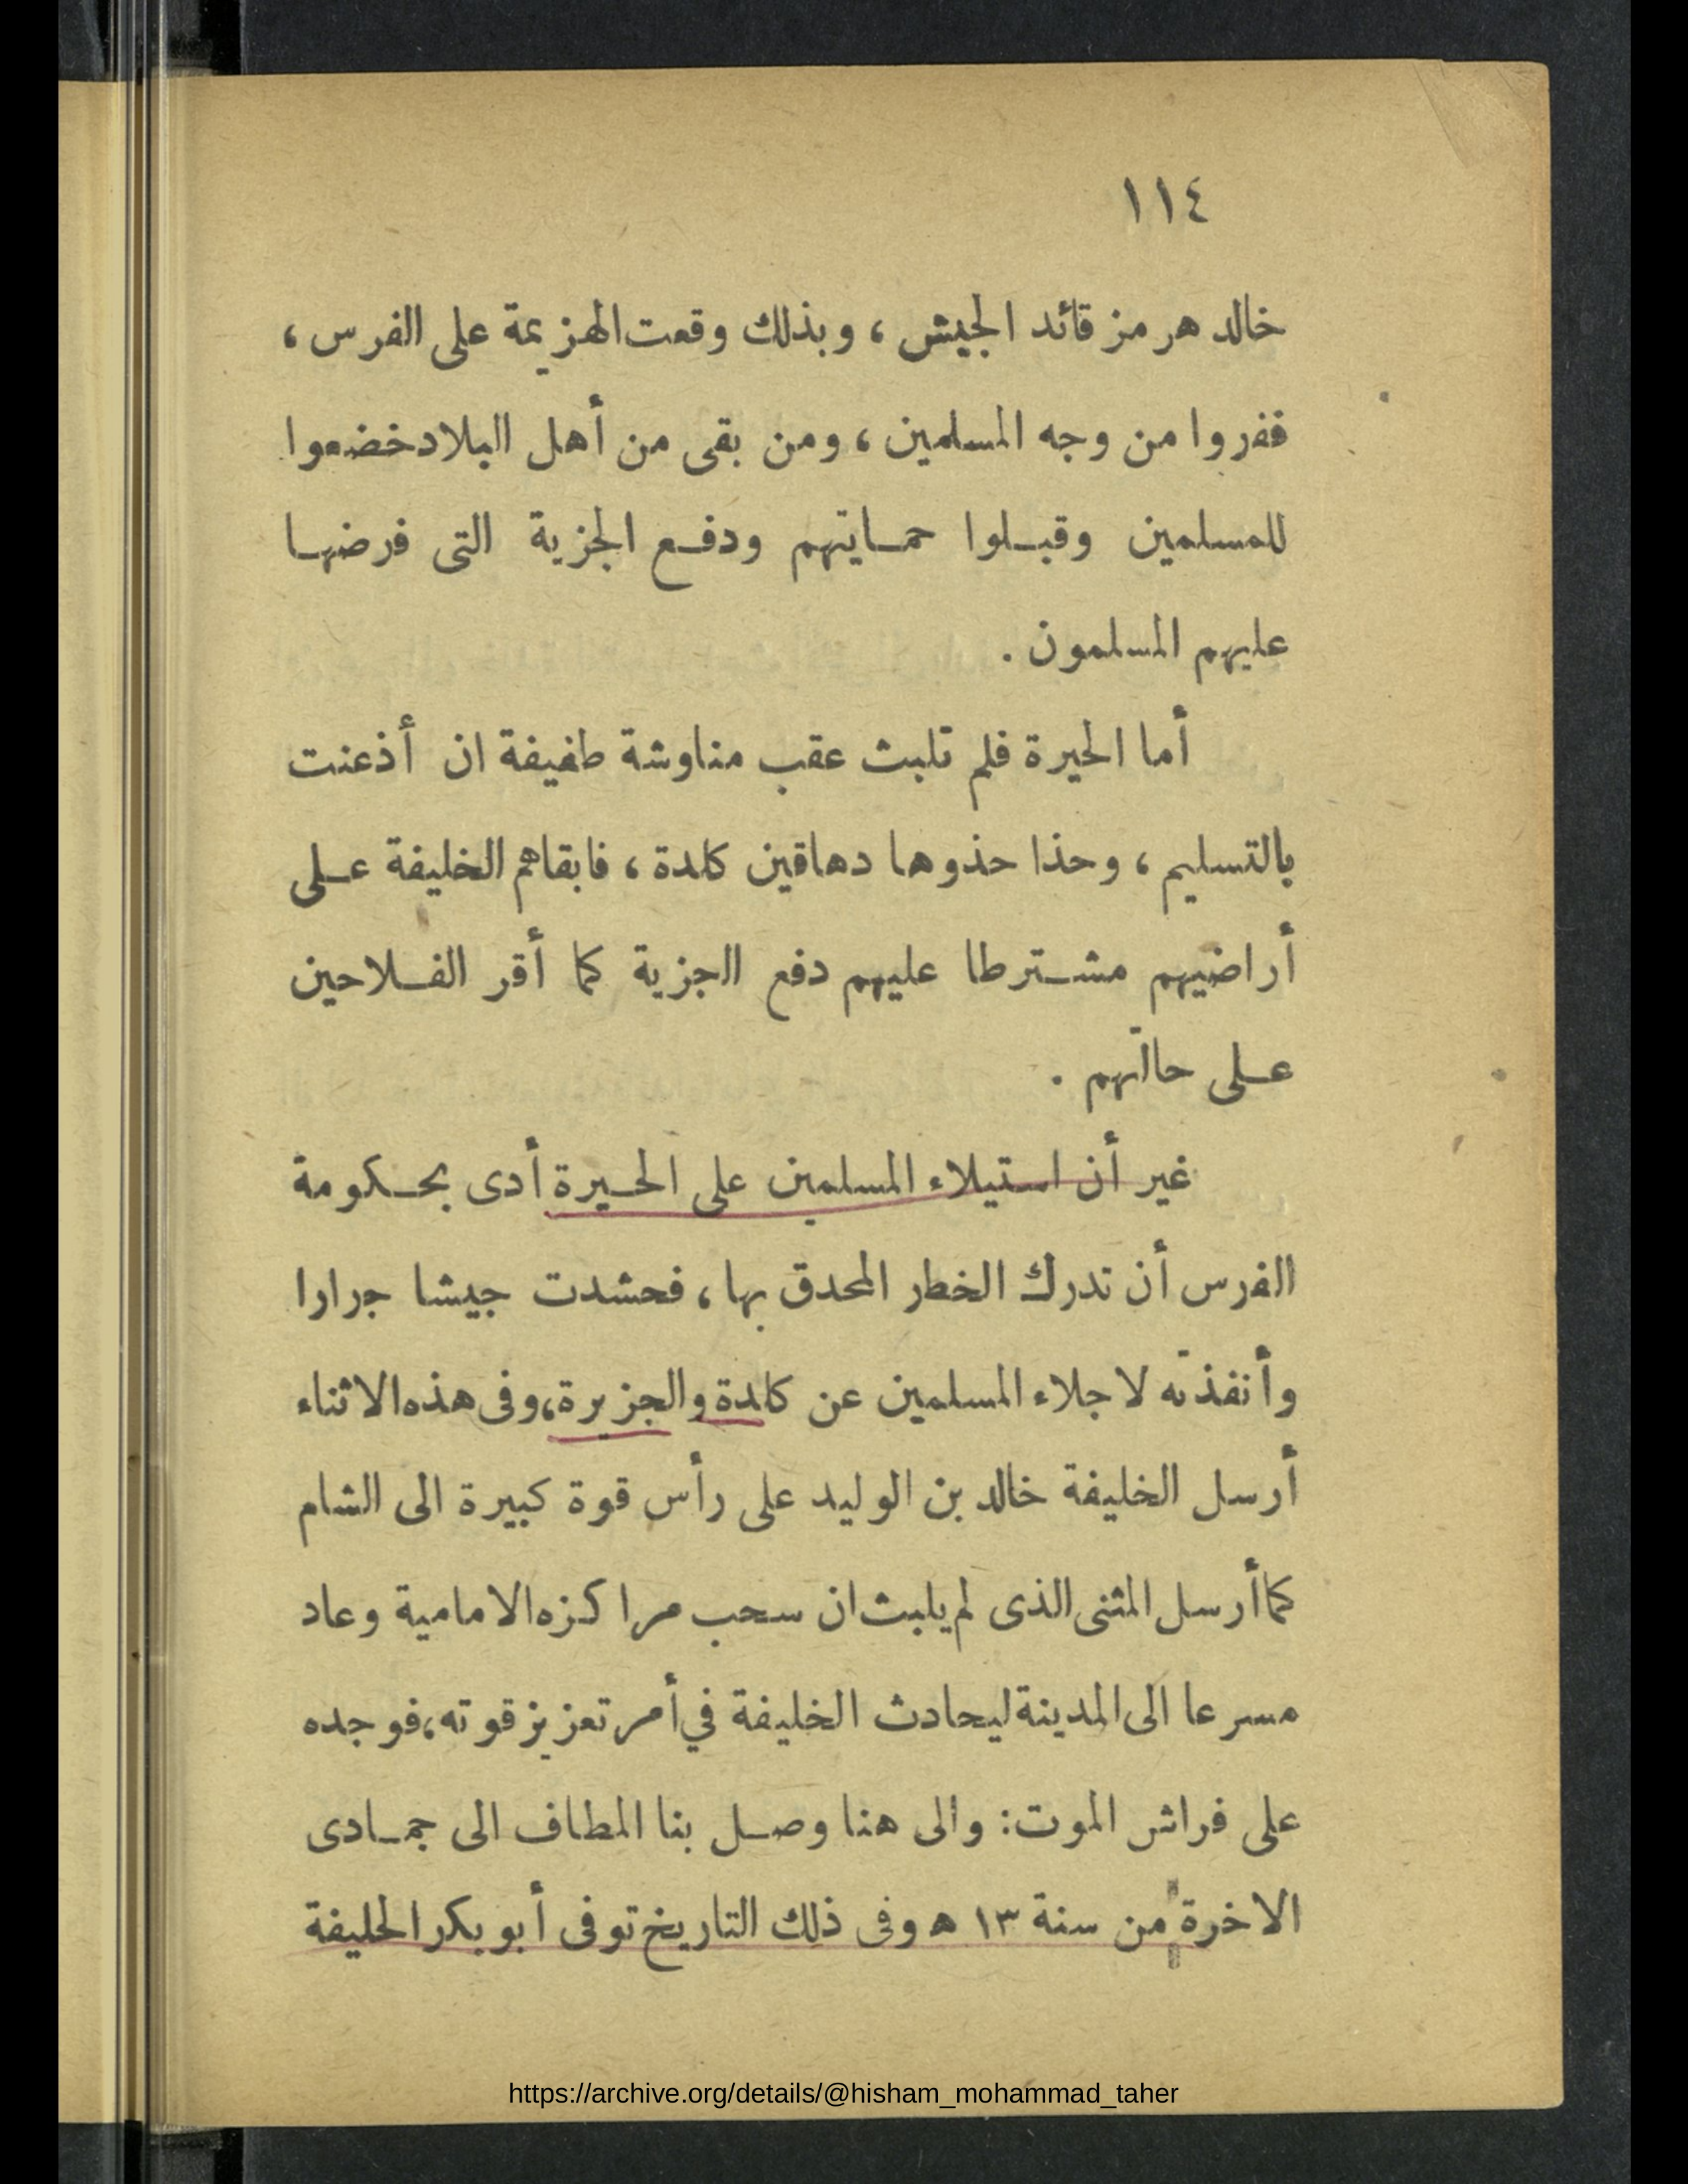 ١١٤
خالد هرمز قائد الجيش ، وبذلك وقعت الهزيمة على الفرس ،
ففروا من وجه المسلمين ، ومن بقى من أهل البلاد خضعوا
للمسلمين وقبلوا حمايتهم ودفع الجزية التى فرضها
عليهم المسلمون .
أما الحيرة فلم تلبث عقب مناوشة طفيفة ان أذعنت
بالتسليم ، وحذا حذوها دهاقين كلدة ، فابقاهم الخليفة على
أراضيهم مشترطا عليهم دفع الجزية كما أقر الفلاحين
على حالتهم .
غير أن استيلاء المسلمين على الحيرة أدى بحكومة
الفرس أن تدرك الخطر المحدق بها ، فحشدت جيشا جرارا
وأنفذته لاجلاء المسلمين عن كلدة والجزيرة، وفى هذه الاثناء
أرسل الخليفة خالد بن الوليد على رأس قوة كبيرة الى الشام
كما أرسل المثنى الذى لم يلبث ان سحب مراكزه الامامية وعاد
مسرعا الى المدينة ليحادث الخليفة في أمر تعزيز قوته، فوجده
على فراش الموت: والى هنا وصل بنا المطاف الى جمادى
الاخرة من سنة ١٣ ه وفى ذلك التاريخ توفى أبو بكر الخليفة
https://archive.org/details/@hisham_mohammad_taher